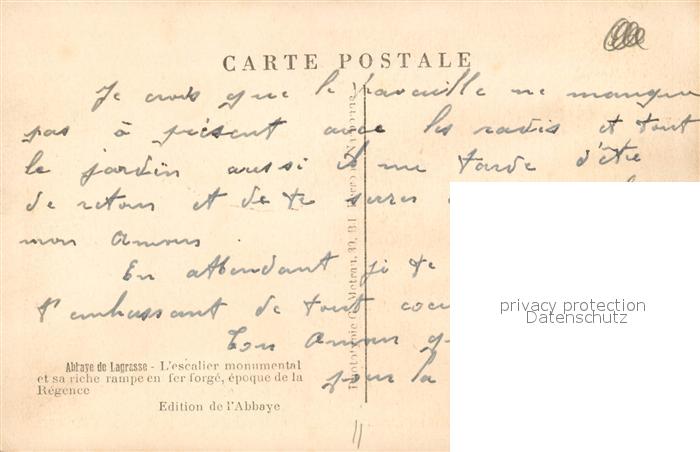 CARTE POSTALE
Je crois que le travaille ne manque
pas à présent avec les radis et tout
le jardin aussi il me tarde d'être
de retour et de te serrer
mon Amour.
En attendant je te
t'embrassant de tout coeu
Ton Amour
pour la
Abbaye de Lagrasse - L'escalier monumental
et sa riche rampe en fer forgé, époque de la
Régence
Edition de l'Abbaye
privacy protection
Datenschutz